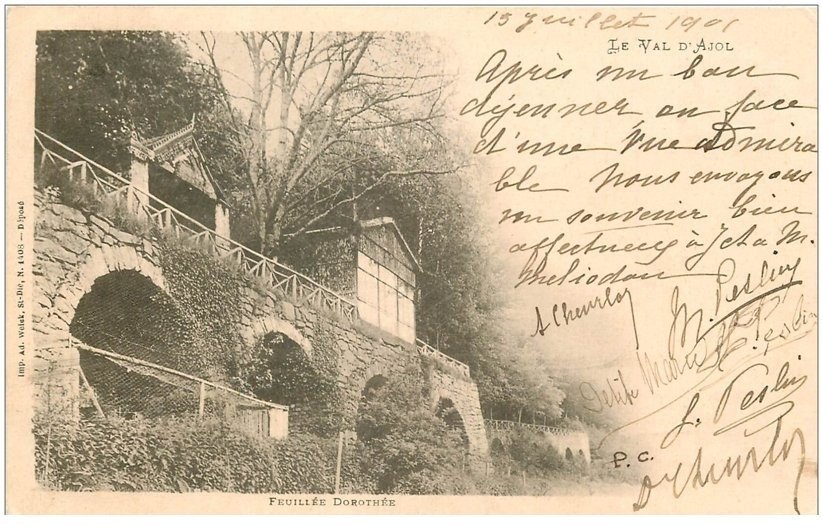 15 Juillet 1901
LE VAL D'AJOL
Après un bon
déjeuner en face
d'une vue admira
ble nous envoyons
un souvenir bien
affectueux à J et a M.
Meliodon
A Cheurloz
M. Peslin
Petite Marie Peslin
J. Peslin
P.C.
D Cheurloz
Imp. Ad. Weick, St-Dié, N. 1408 — Déposé
FEUILLÉE DOROTHÉE